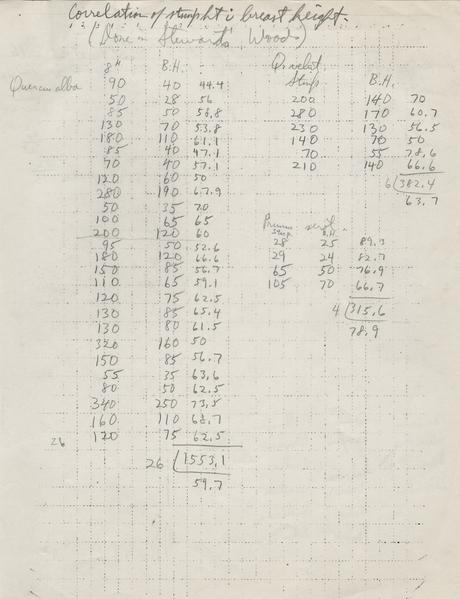 Correlation of stump ht c̄ breast height.
(Done in Stewarts' Woods)
Quercus alba
8" B.H.
90 40 44.4
50 28 56
85 50 58.8
130 70 53.8
180 110 61.1
85 40 47.1
70 40 57.1
120 60 50
280 190 67.9
50 35 70
100 65 65
200 120 60
95 50 52.6
180 120 66.6
150 85 56.7
110 65 59.1
120 75 62.5
130 85 65.4
130 80 61.5
320 160 50
150 85 56.7
55 35 63.6
80 50 62.5
340 250 73.5
160 110 68.7
26 120 75 62.5
26 1553.1
59.7
Q. velut.
Stump B.H.
200 140 70
280 170 60.7
230 130 56.5
140 70 50
70 55 78.6
210 140 66.6
6 382.4
63.7
Prunus serot.
Stump B.H.
28 25 89.3
29 24 82.7
65 50 76.9
105 70 66.7
4 315.6
78.9